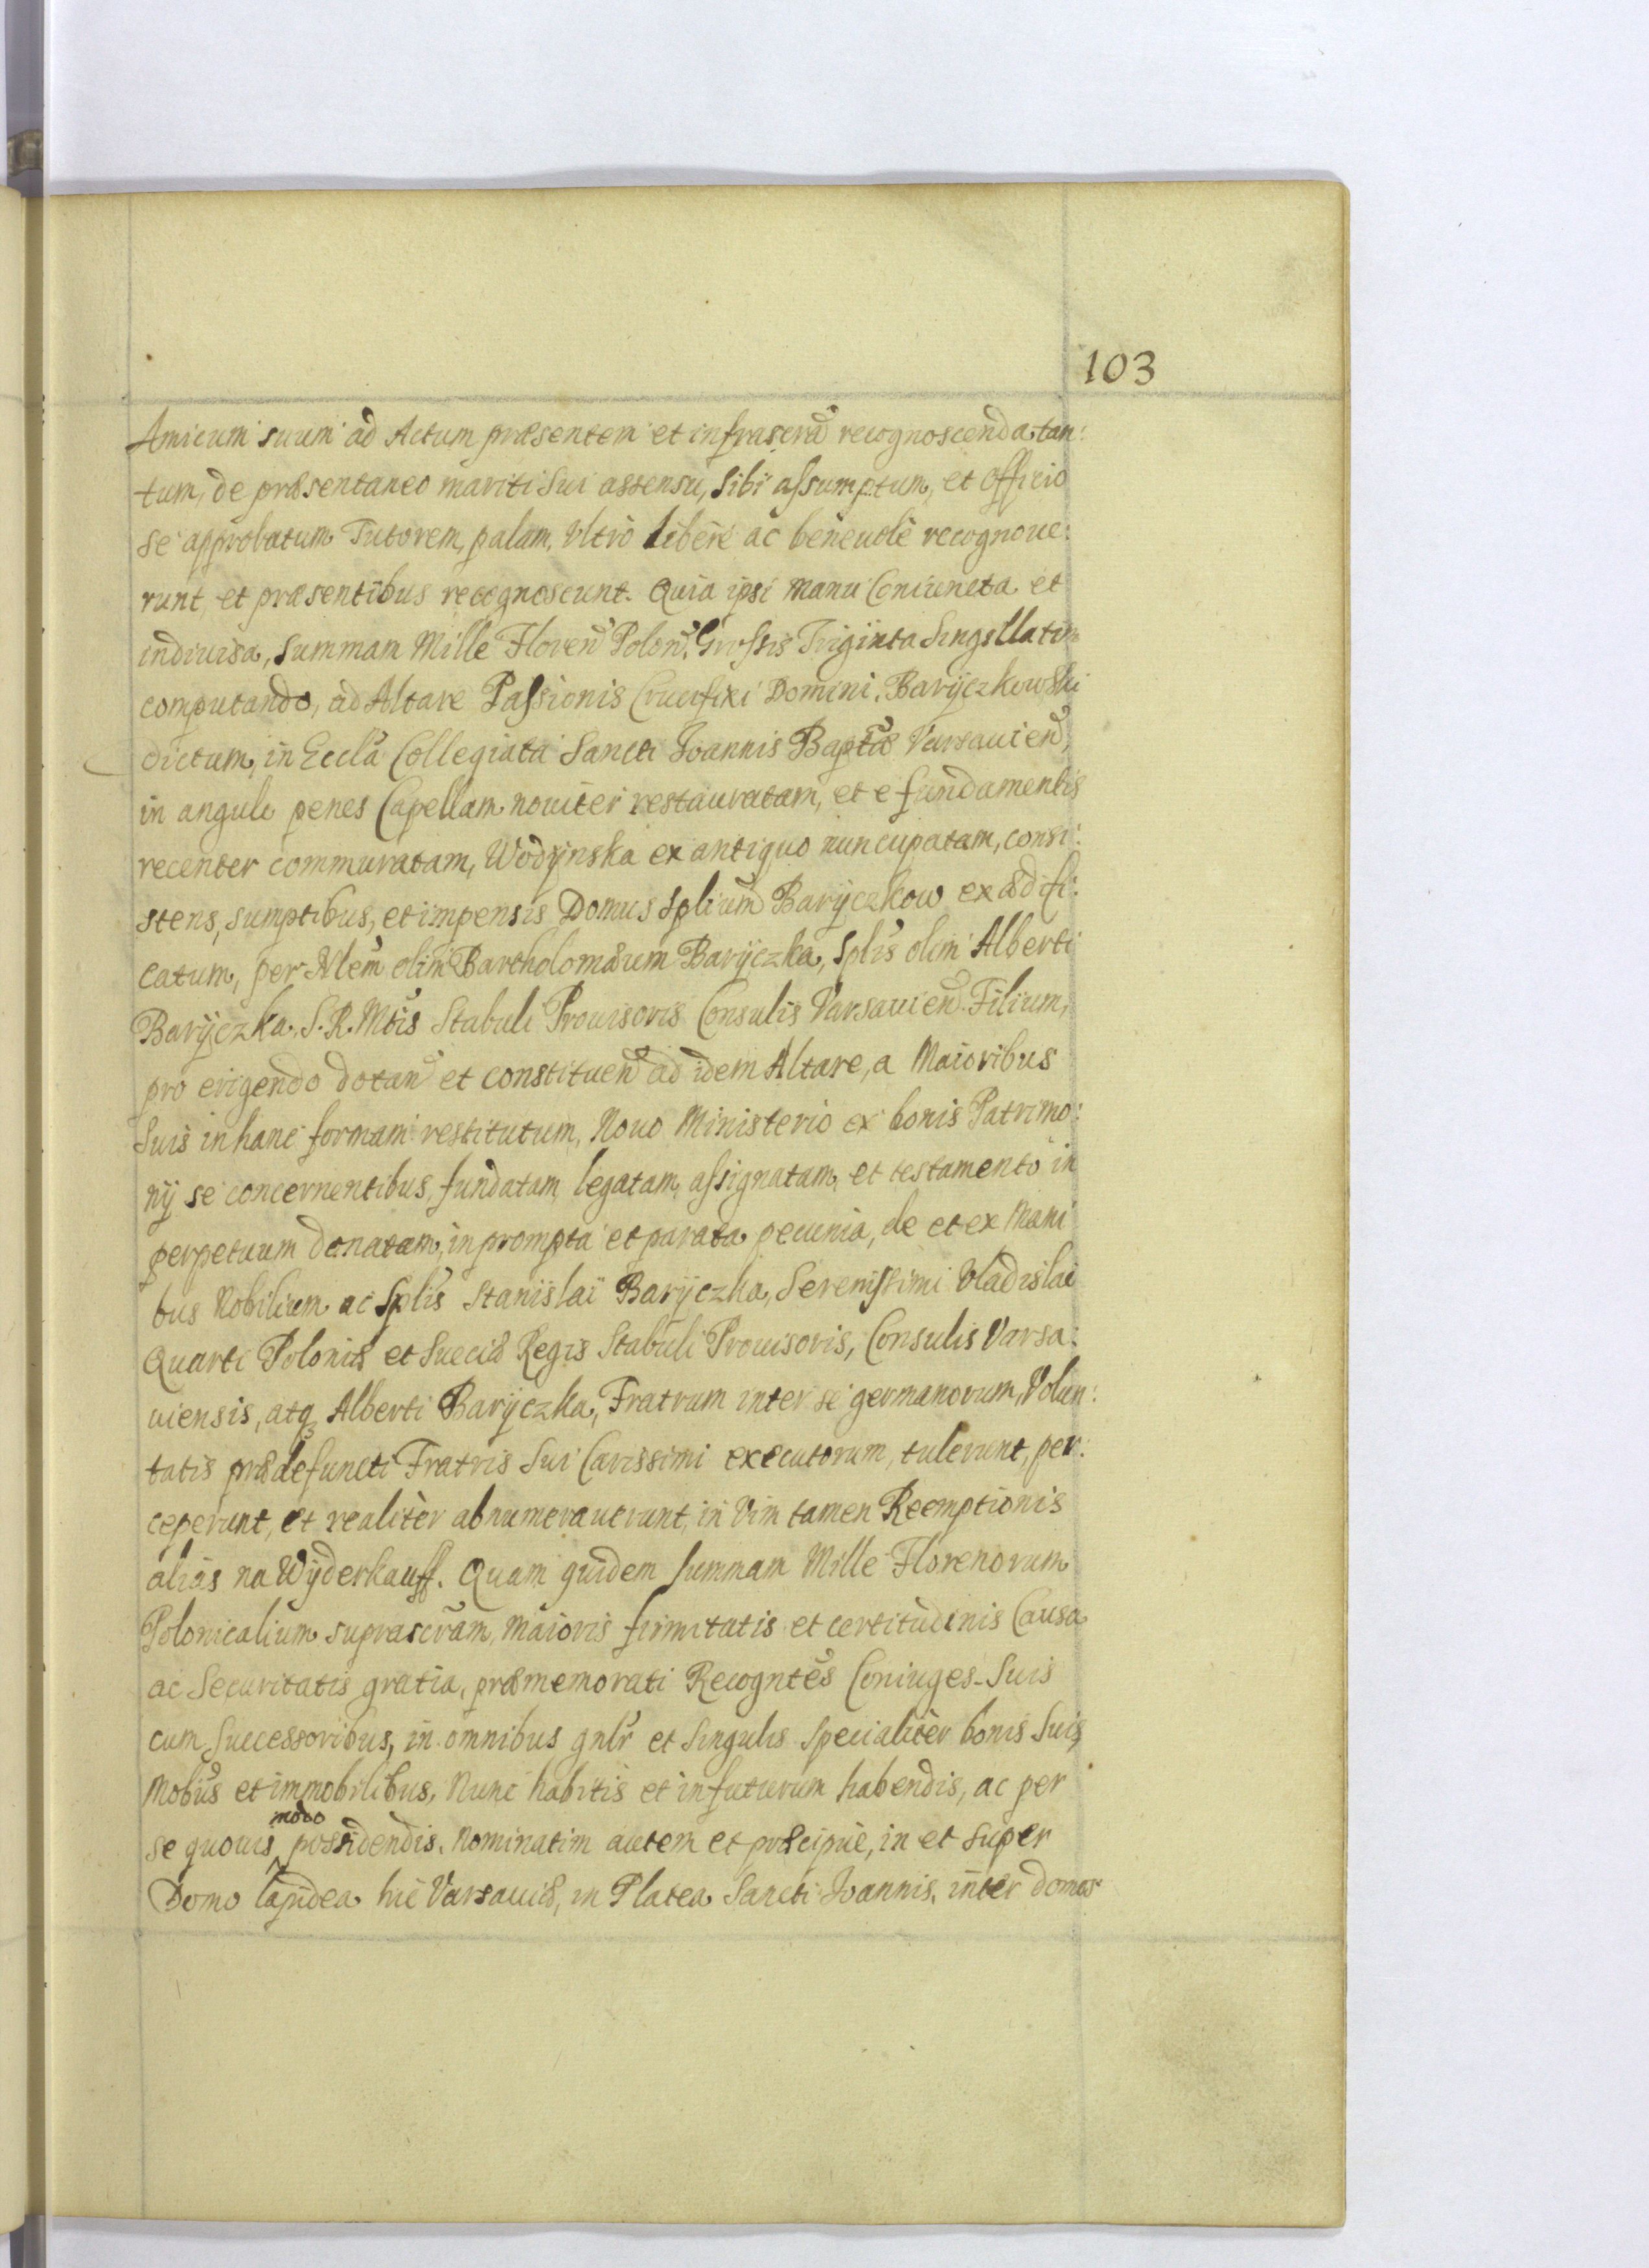 103
Amicum suum ad Actum præsentem et infrascrã recognoscenda tan:
tum, de præsentaneo mariti sui assensu, sibi assumptum, et officio
se approbatum Tutorem, palam, Vltrò liberè ac beneuolè recognoue:
runt et præsentibus recognoscunt. Quia ipsi manu Coniuncta et
indiuisa, summam Mille Floren̄ Polon̄. Grossis Trigïnta Singillatim
computando, ad Altare Passionis Crucifixi Domini, Barÿczkowski
dictum, in Ecclã Collegiata Sancti Joannis Baptã Varsauien̄,
in angulo penes Capellam nouiter restauratam, et e fundamentis
recenter commuratam, Wodÿnska ex antiquo nuncupatam, consi:
stens, sumptibus, et impensis Domus Splium̃ Barÿczkow exædifi:
catum, per Nlem̃ olim Bartholomæum Barÿczka, Splis̃ olim Alberti
Barÿczka, S. R. Mtis̃ Stabuli Prouisoris Consulis Varsauien̄. Filium,
pro erigendo dotan̄ et constituen̄ ad idem Altare, a Maioribus
Suis in hanc formam restitutum, Nouo Ministerio ex bonis Patrimo:
nÿ se concernentibus, fundatam, legatam, assignatam, et testamento in
perpetuum donatam, in prompta et parata pecunia, de et ex Mani
bus Nobilium ac Splis̃ Stanislaï Barÿczka, Serenissimi Vladislai
Quarti Poloniæ et Sueciæ Regis Stabuli Prouisoris, Consulis Varsa:
uiensis, atq3 Alberti Barÿczka, Fratrum inter se germanorum, Volun:
tatis prædefuncti Fratris Sui Carissimi executorum, tulerunt, per:
ceperunt, et realitèr abnumerauerunt, in Vim tamen Reemptionis
aliàs na Wÿderkauff. Quam quidem summam Mille Florenorum
Polonicalium suprascrãm, maioris firmitatis et certitudinis Causa
ac Securitatis gratia, præmemorati Recogntes̃ Coniuges Suis
cum Successoribus, in omnibus gnlr̃ et Singulis Specialitèr bonis Suis
Mobiũs et immobilibus, Nunc habitis et in futurum habendis, ac per
se quouis modo possidendis. Nominatim autem et præcipuè, in et super
Domo lapidea hic Varsauiæ, in Platea Sancti Joannis, inter domos